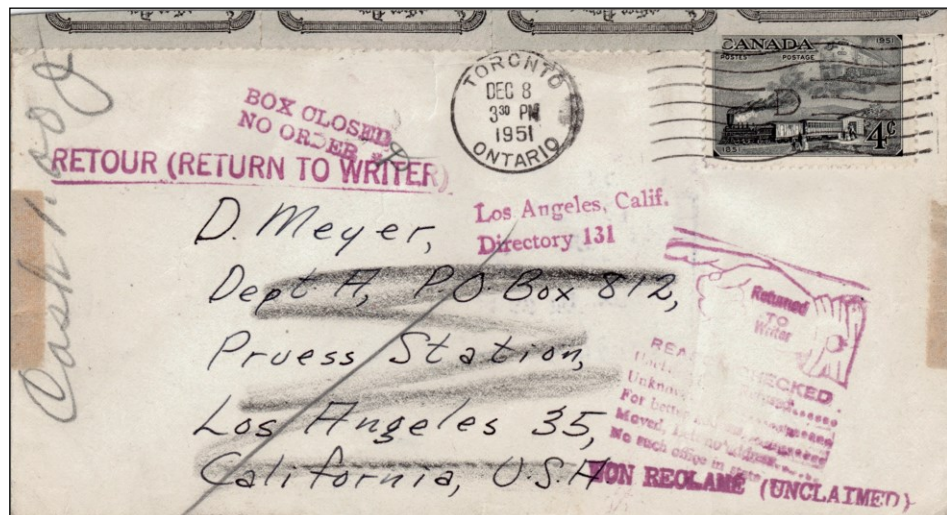 CANADA
1951
POSTES POSTAGE
4¢
1851
TORONTO
DEC 8
3 30 PM
1951
ONTARIO
BOX CLOSED
NO ORDER
RETOUR (RETURN TO WRITER)
Los Angeles, Calif.
Directory 131
D. Meyer,
Dept A, P.O. Box 812,
Pruess Station,
Los Angeles 35,
California, U.S.A
Returned
TO
Writer
CHECKED
Unknown
For better
Moved,
No such office in state
NON REOLAMÉ (UNCLAIMED)
Cash